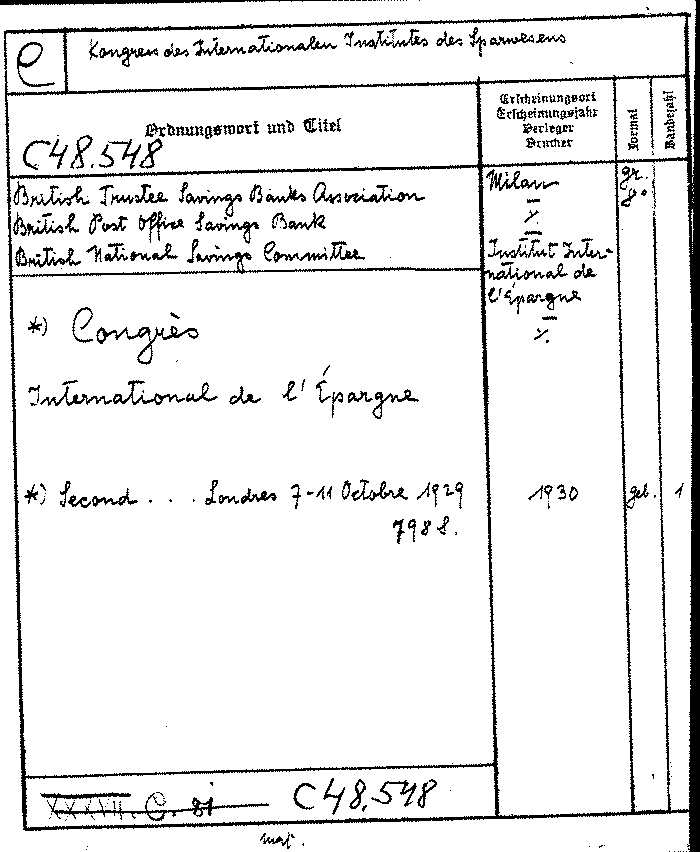 e
Kongress des Internationalen Institutes des Sparwesens
Ordnungswort und Titel
C48.548
Erscheinungsort
Erscheinungsjahr
Verleger
Drucker
Format
Bändezahl
British Trustee Savings Banks Association
British Post Office Savings Bank
British National Savings Committee
Milan
–
%
–
Institut Inter-
national de
l'Épargne
–
%.
gr.
8°
*) Congrès
International de l'Épargne
*) Second . . . Londres 7-11 Octobre 1929
798 S.
1930
geb.
1
XXXVII. C. 81
C48.548